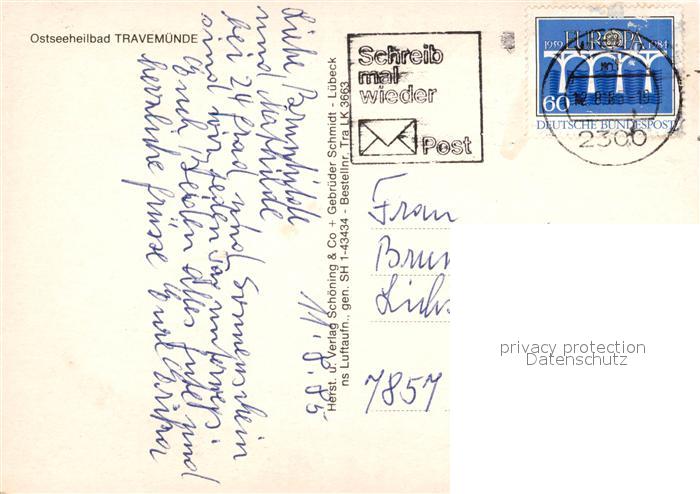 Ostseeheilbad TRAVEMÜNDE
Liebe Brunhilde
und Mathilde
bei 24 grad und Sonnenschein
sind wir jeden Tag unterwegs
Euch Beiden alles gute und
herzliche grüsse Eure
11.8.85
Herst. u. Verlag Schöning & Co + Gebrüder Schmidt - Lübeck
ns Luftaufn., gen. SH 1-43434 - Bestellnr. Tra LK 3663
Schreib
mal
wieder
Post
EUROPA
1959 1984
60
DEUTSCHE BUNDESPOST
2300
Frau
Brun
Lichs
7857
privacy protection
Datenschutz